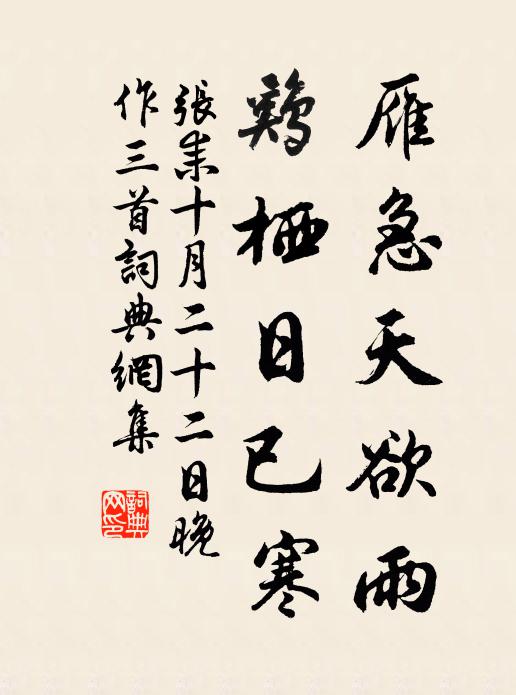 雁急天欲雨
鷄栖日已寒
張耒十月二十二日晚
作三首詞典網集
詞典網印